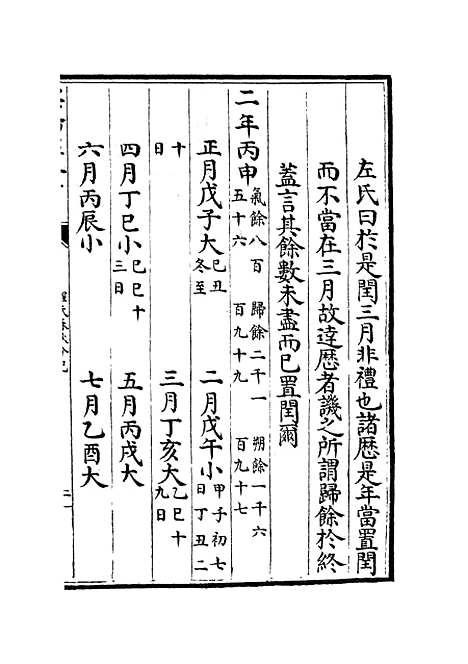 左氏曰於是閏三月非禮也諸厯是年當置閏
而不當在三月故達厯者譏之所謂歸餘於終
蓋言其餘數未盡而已置閏爾
二年丙申氣餘八百五十六 歸餘二千一百九十九 朔餘一千六百九十七
正月戊子大己丑冬至 二月戊午小甲子初七日丁丑二
十日 三月丁亥大乙巳十九日
四月丁巳小己巳十三日 五月丙戌大
六月丙辰小 七月乙酉大